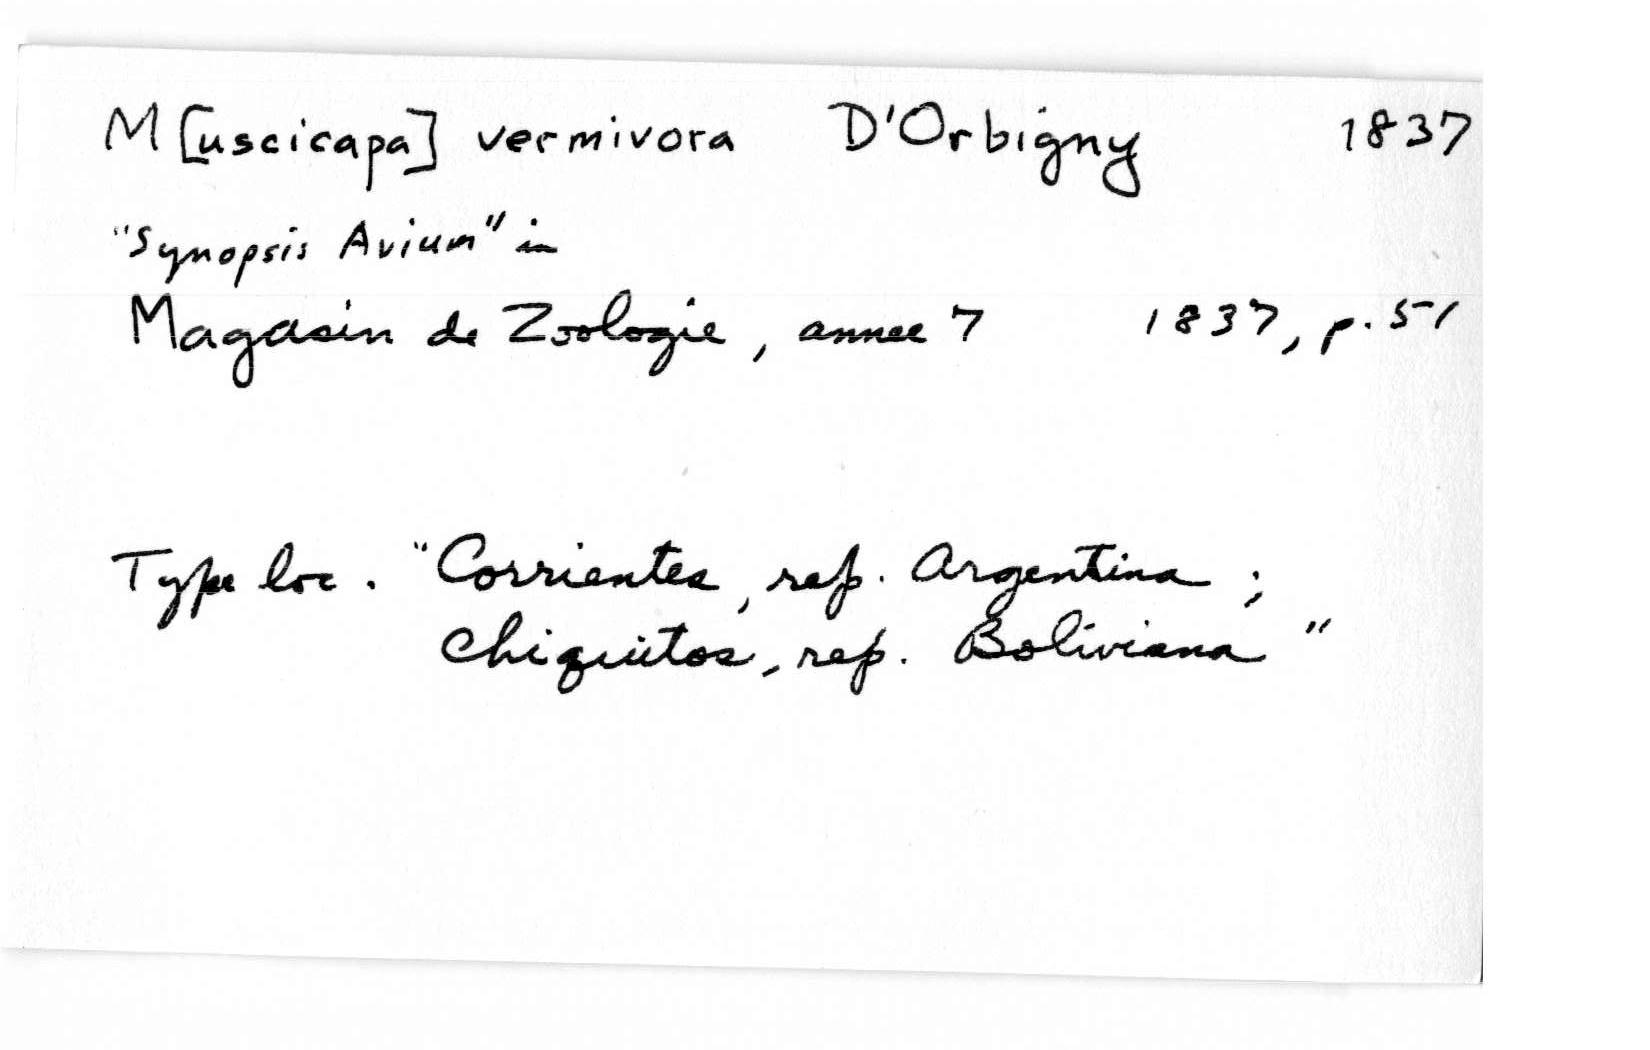 M[uscicapa] vermivora D'Orbigny 1837
"Synopsis Avium" in
Magasin de Zoologie, annee 7 1837, p. 51
Type loc. "Corrientes, rep. Argentina;
Chiquitos, rep. Boliviana"